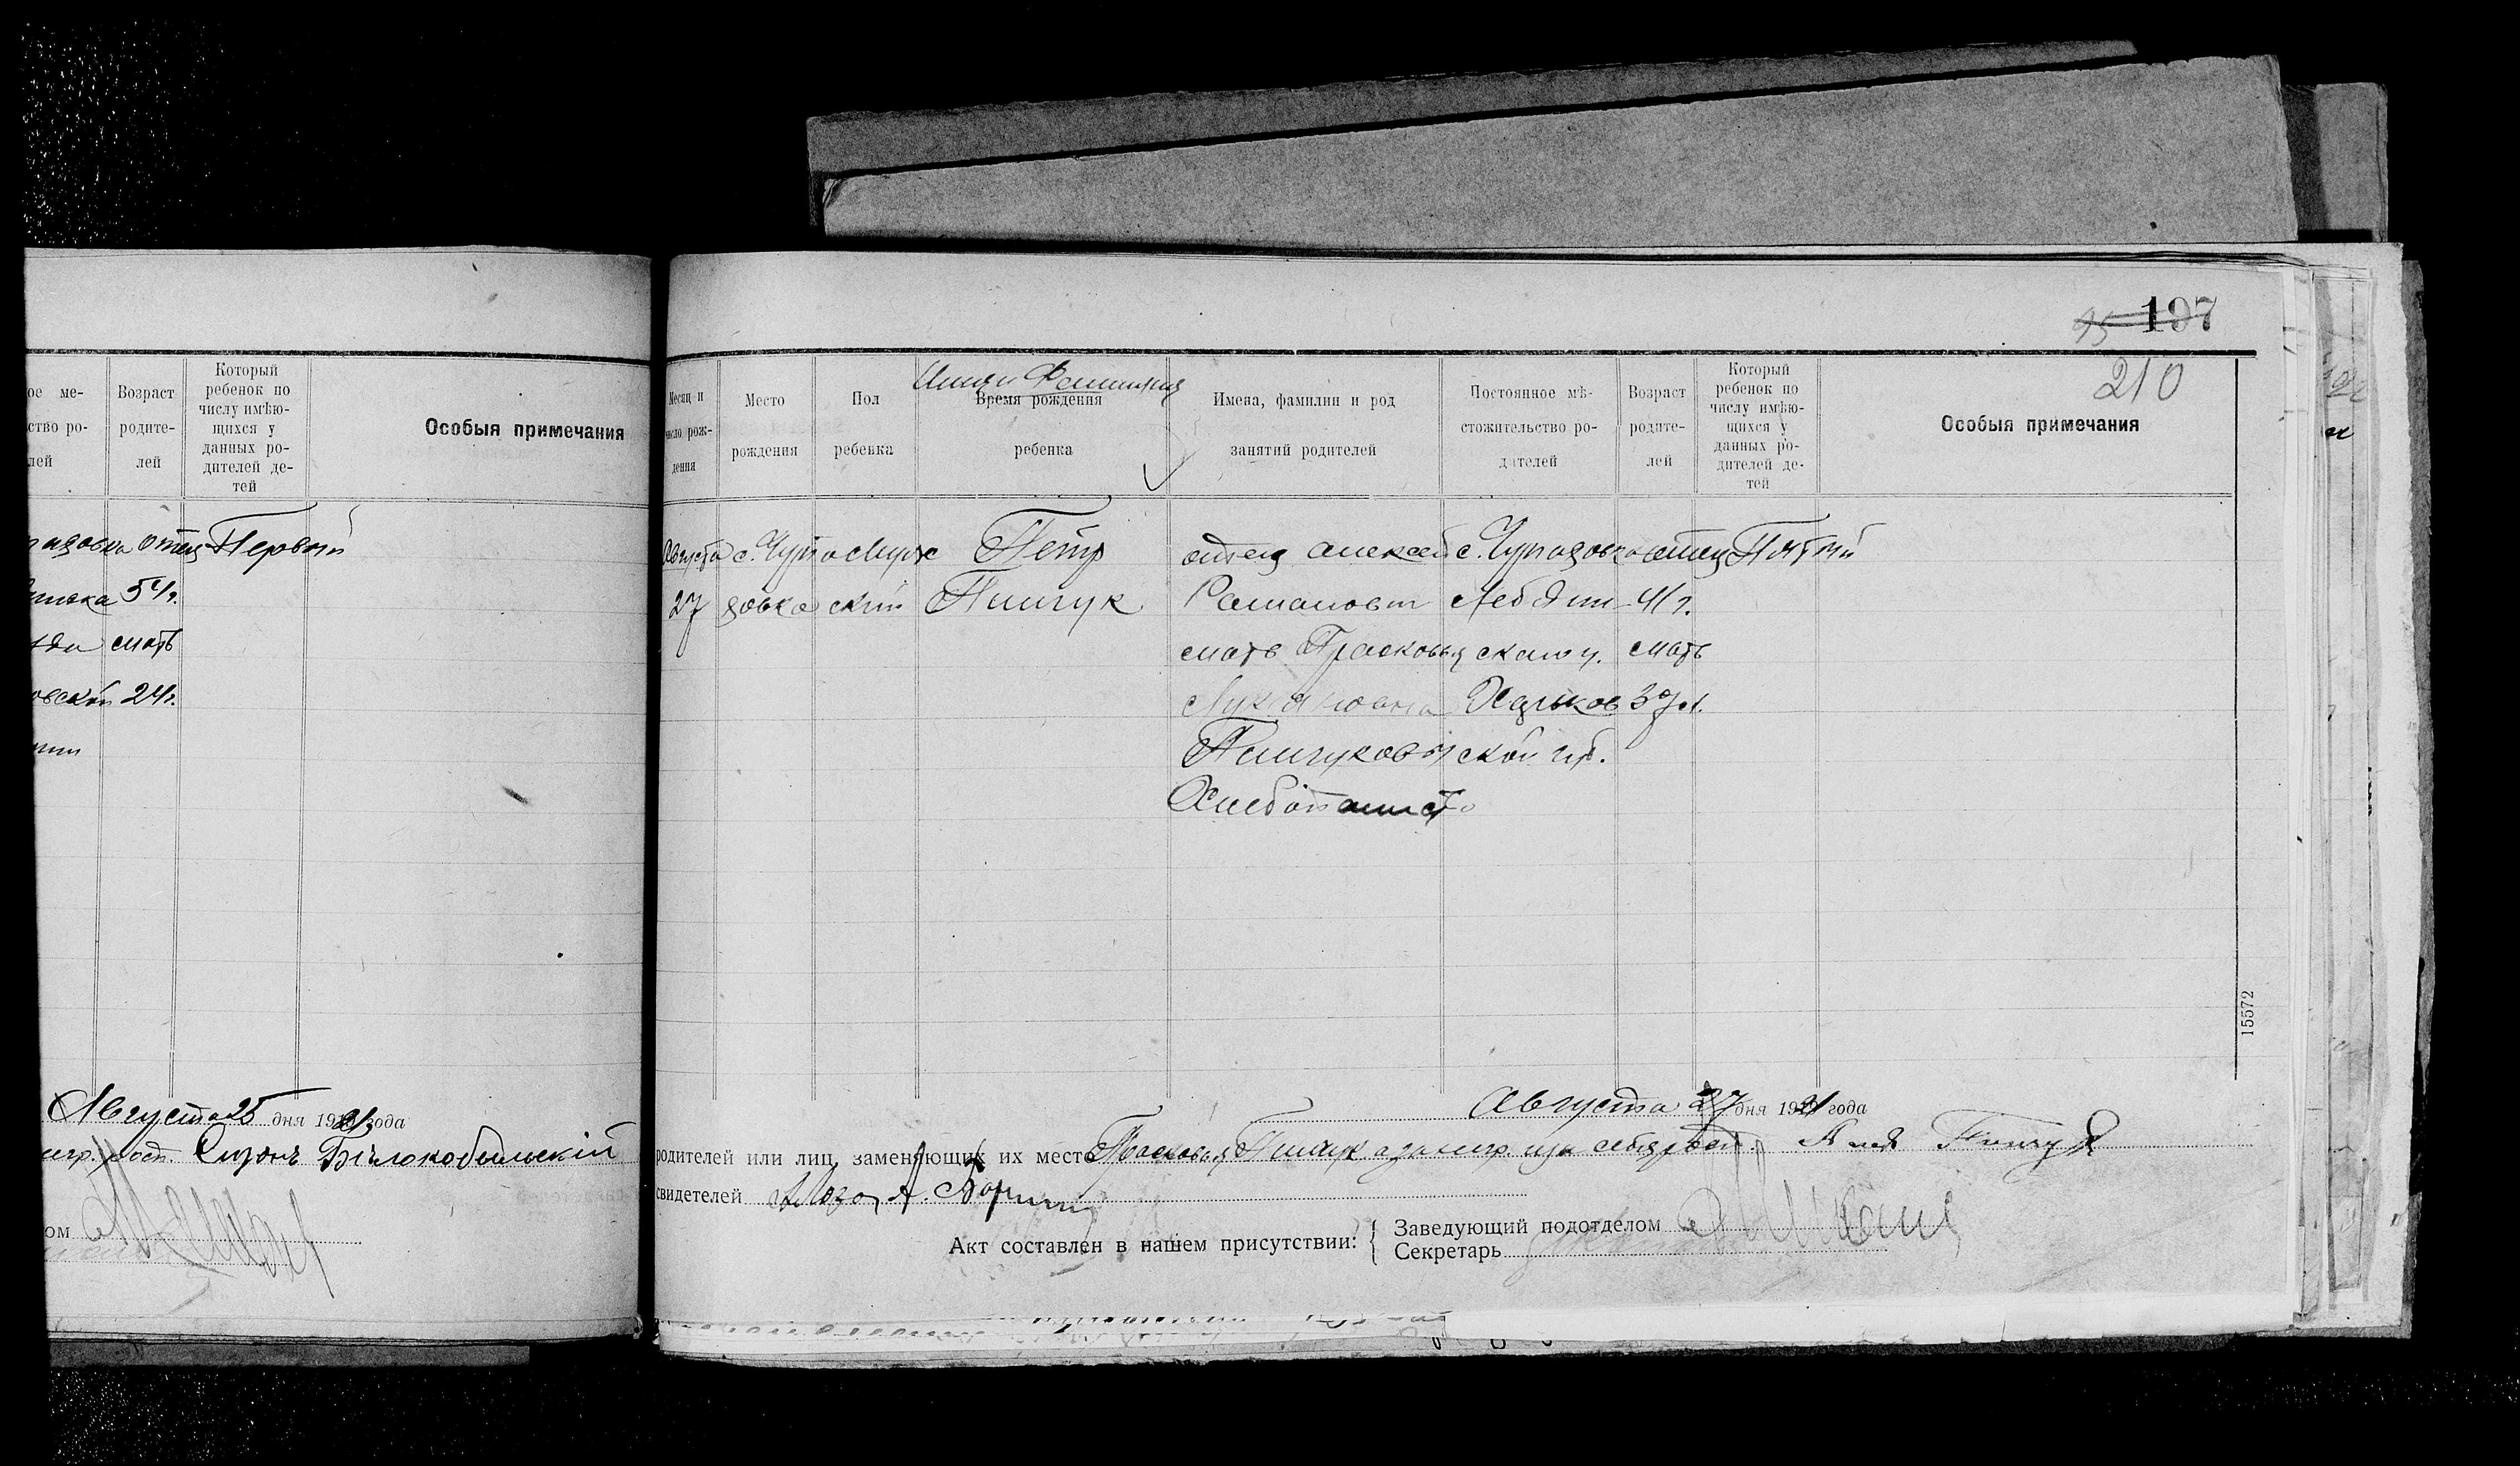 ое ме-
ство ро-
лей
Возраст
родите-
лей
Который
ребенок по
числу имѣю-
щихся у
данных ро-
дителей де-
тей
Особыя примечания
отец Первый
54 г.
мать
24 г.
Августа 25 дня 1921 года
Бѣлокобыльскій
ом
95 197
210
Месяц и
число рож-
дения
Место
рождения
Пол
ребенка
Имя и Фамилия
Время рождения
ребенка
Имена, фамилии и род
занятий родителей
Постоянное мѣ-
стожительство ро-
дителей
Возраст
родите-
лей
Который
ребенок по
числу имѣю-
щихся у
данных ро-
дителей де-
тей
Особыя примечания
Августа
27
с. Чупа
ховка
Муж
ской
Петр
Пинчук
отец Алексей
Романович
мать Прасковья
Лукяновна
Пинчуковы
Хлебопашест
с. Чупаховка
Лебедин
ского у.
Харьков
ской губ.
отец
41 г.
мать
37 л.
Пятый
15572
Августа 27 дня 1921 года
родителей или лиц, заменяющих их место Прасковья Пинчук
свидетелей
Акт составлен в нашем присутствии:
Заведующий подотделом
Секретарь